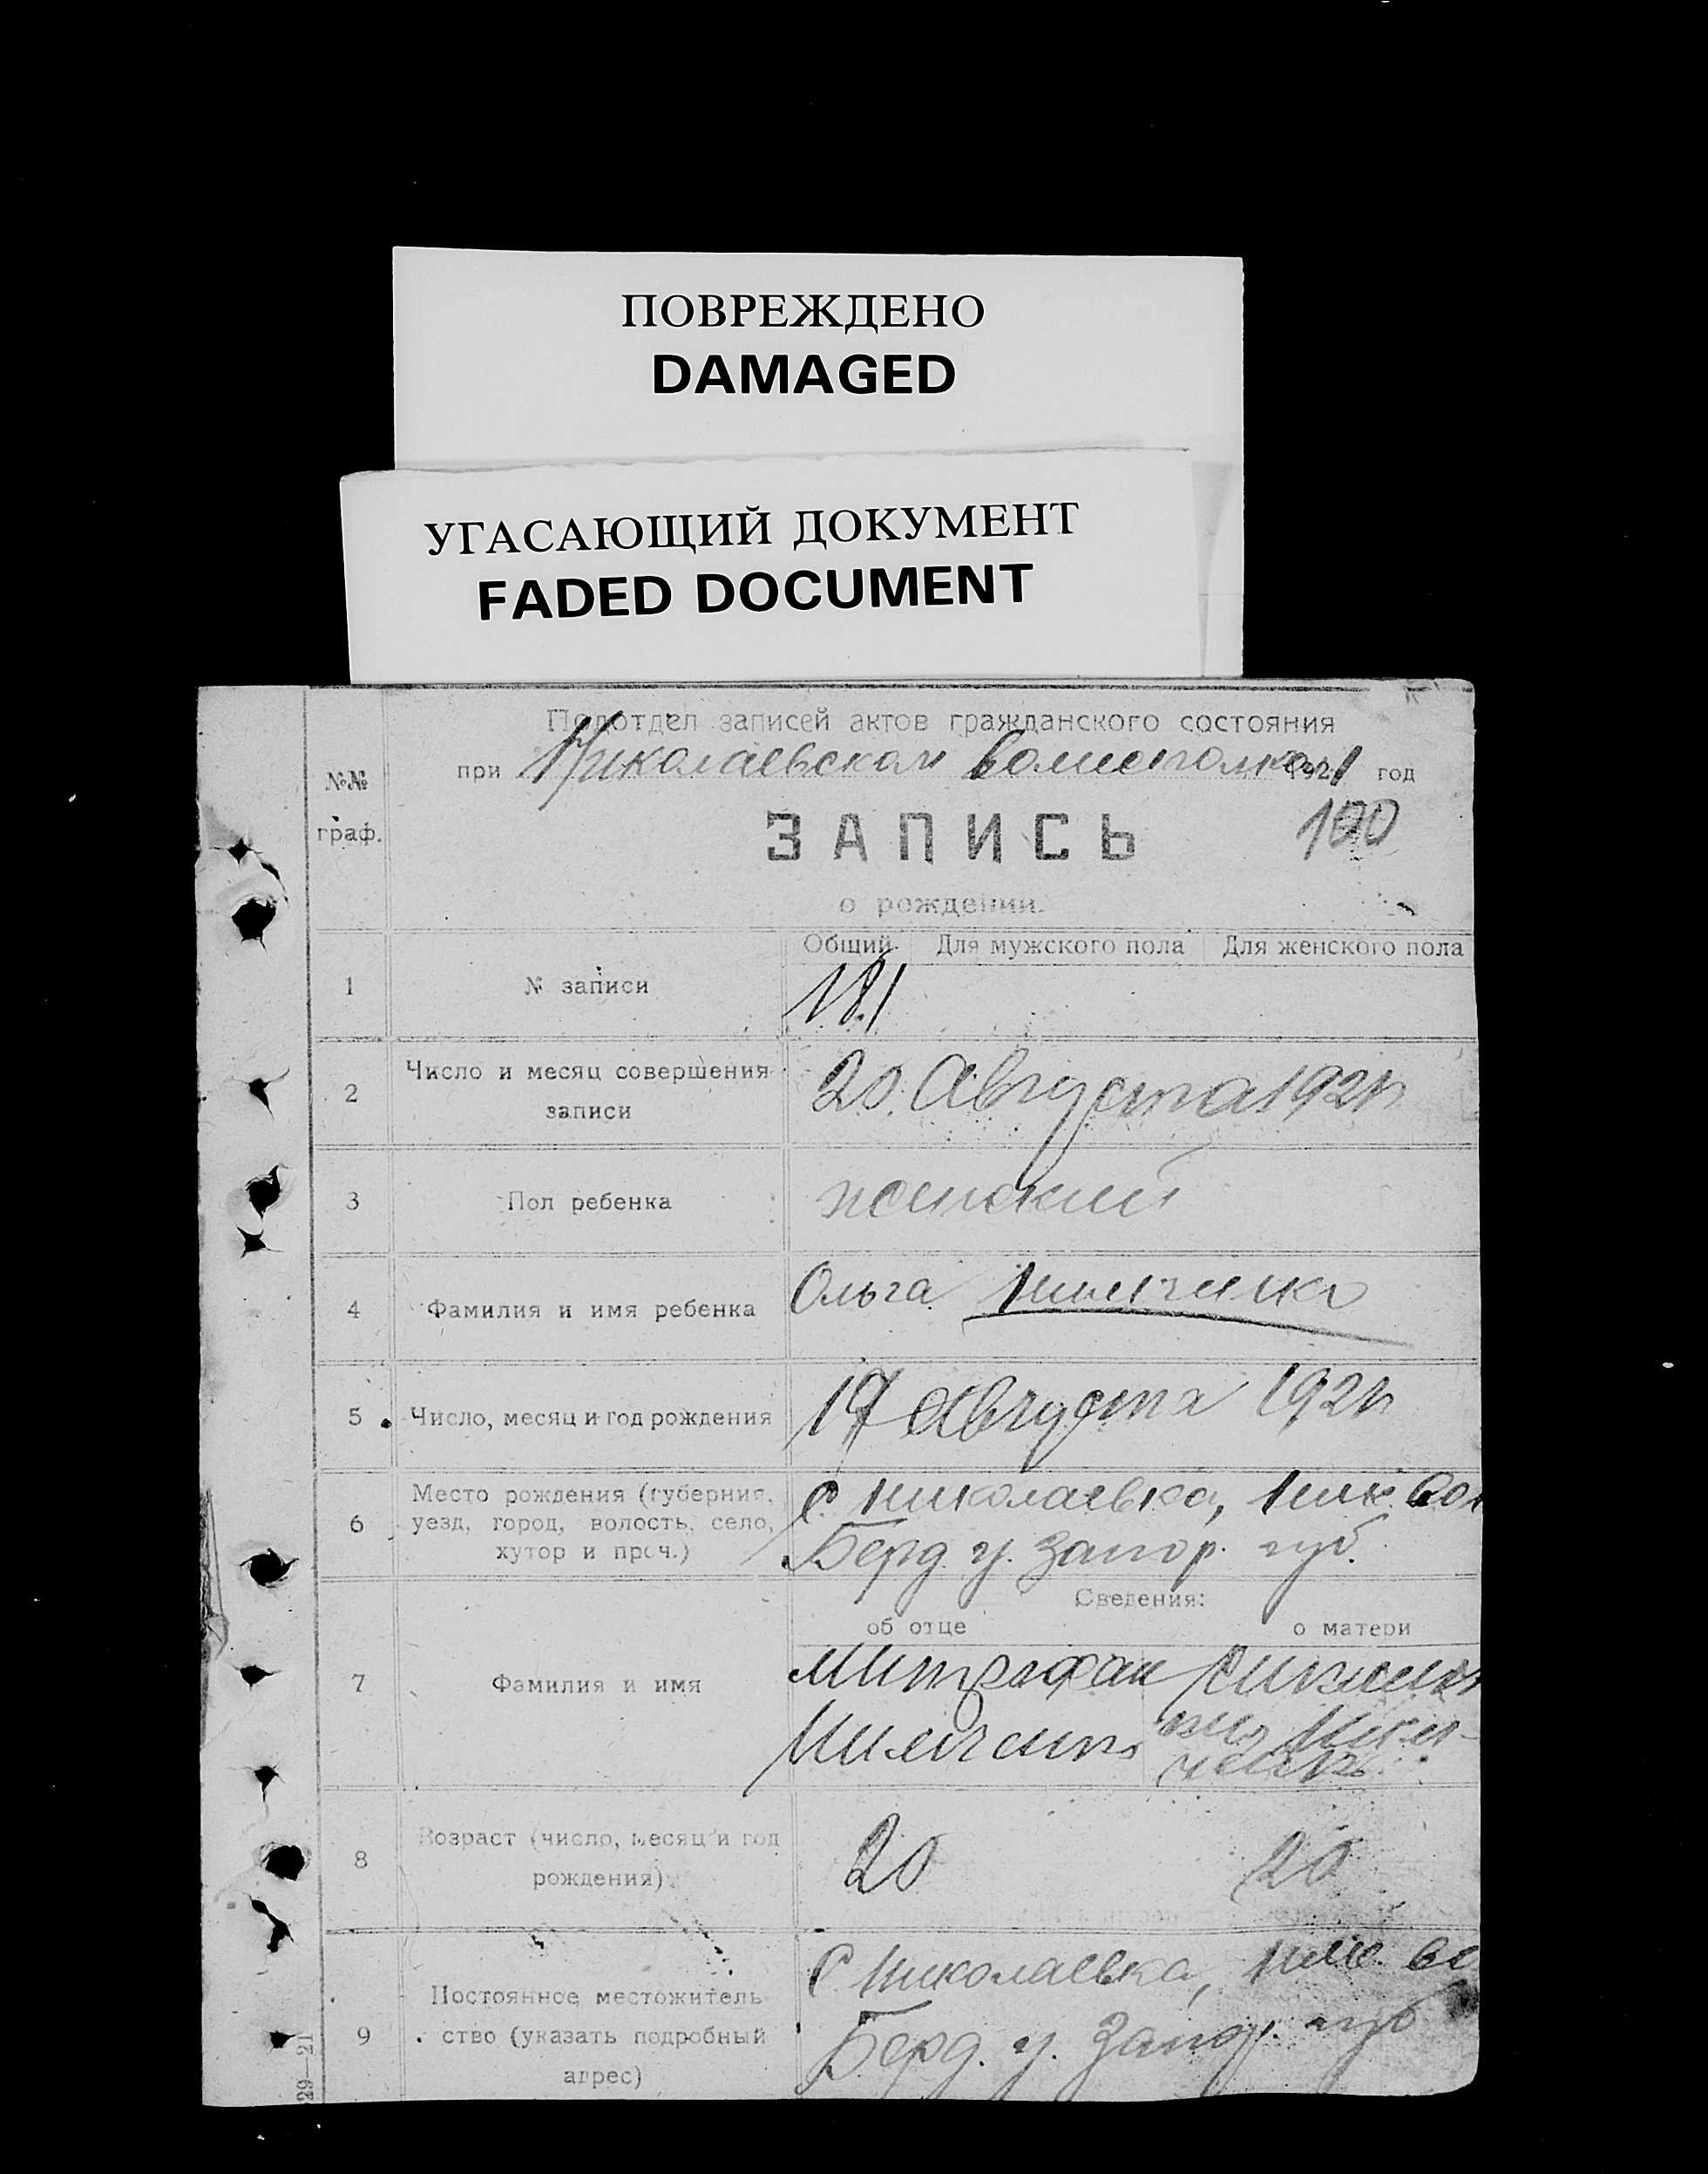 ПОВРЕЖДЕНО
DAMAGED
УГАСАЮЩИЙ ДОКУМЕНТ
FADED DOCUMENT
Подотдел записей актов гражданского состояния
при Николаевском 1921 год
№№
граф.
ЗАПИСЬ
100
о рождении.
Общий. Для мужского пола Для женского пола
1 № записи 181
2 Число и месяц совершения записи 20 Августа 1921 г
3 Пол ребенка женский
4 Фамилия и имя ребенка Ольга
5 Число, месяц и год рождения 17 Августа 1921 г
6 Место рождения (губерния, уезд, город, волость, село, хутор и проч.) С Николаевка, Ник. вол
Берд. у. Запор. губ.
Сведения:
об отце о матери
7 Фамилия и имя Митрофан
8 Возраст (число, месяц и год рождения) 20 20
9 Постоянное местожительство (указать подробный адрес) С Николаевка, Ник. во
Берд. у. Запор. губ
29—21